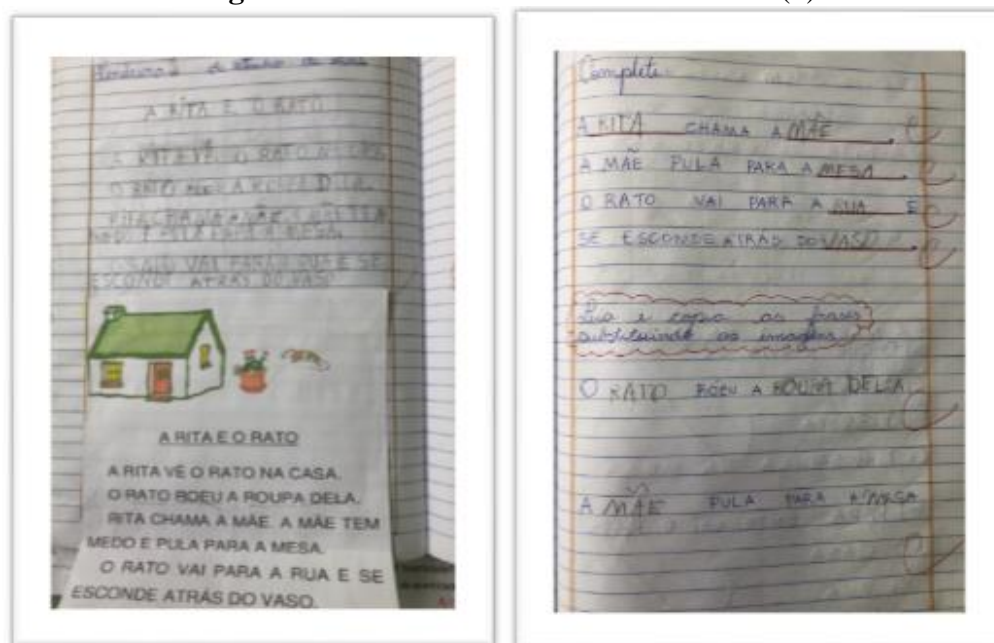 A RITA E O RATO
A RITA VÊ O RATO NA CASA
O RATO ROEU A ROUPA DELA.
RITA CHAMA A MÃE. A MÃE TEM
MEDO E PULA PARA A MESA.
O RATO VAI PARA A RUA E SE
ESCONDE ATRÁS DO VASO
A RITA E O RATO
A RITA VÊ O RATO NA CASA.
O RATO ROEU A ROUPA DELA.
RITA CHAMA A MÃE. A MÃE TEM
MEDO E PULA PARA A MESA.
O RATO VAI PARA A RUA E SE
ESCONDE ATRÁS DO VASO.
Complete
A RITA CHAMA A MÃE.
A MÃE PULA PARA A MESA.
O RATO VAI PARA A RUA E
SE ESCONDE ATRÁS DO VASO.
Leia e copie as frases
substituindo as imagens
O RATO ROEU A ROUPA DELA
A MÃE PULA PARA A MESA